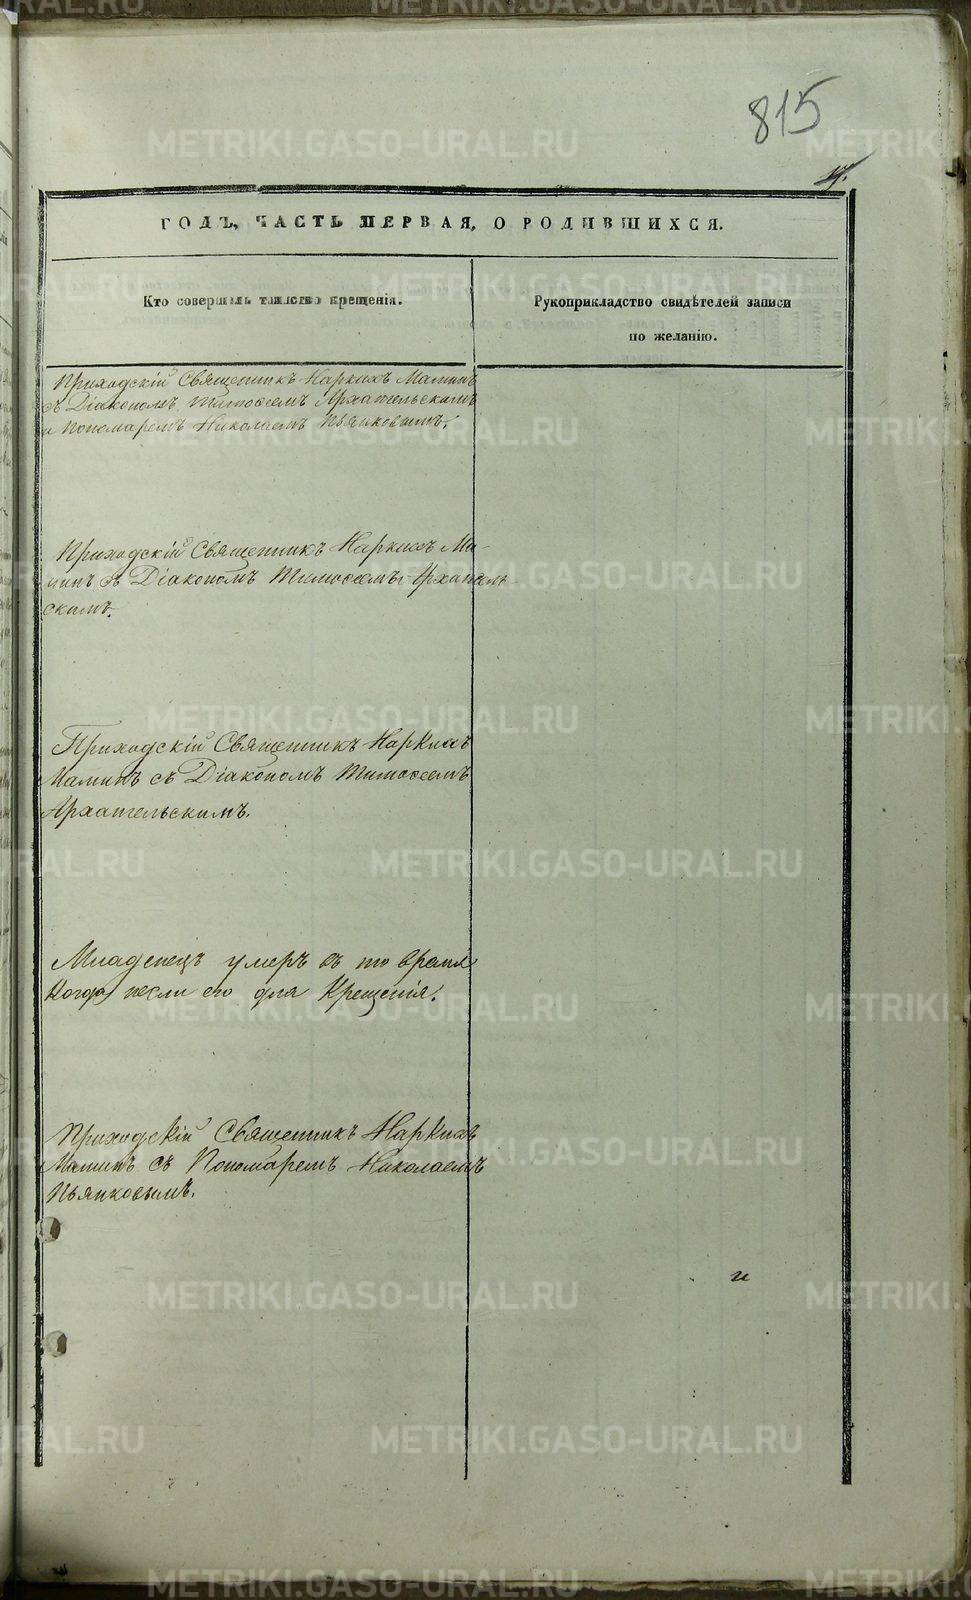 815
17.
ГОДЪ, ЧАСТЬ ПЕРВАЯ, О РОДИВШИХСЯ.
Кто совершалъ таинство крещенія.
Рукоприкладство свидѣтелей записи
по желанію.
Приходскій Священникъ Наркизъ Маминъ
съ Діакономъ Тимоѳеемъ Архангельскимъ
и Пономаремъ Николаемъ Пьянковымъ.
Приходскій Священникъ Наркизъ Ма-
минъ съ Діакономъ Тимоѳеемъ Архангель
скимъ.
Приходскій Священникъ Наркизъ
Маминъ съ Діакономъ Тимоѳеемъ
Архангельскимъ.
Младенецъ умеръ въ то время
когда несли его для Крещенія.
Приходскій Священникъ Наркизъ
Маминъ съ Пономаремъ Николаемъ
Пьянковымъ.
и
METRIKI.GASO-URAL.RU